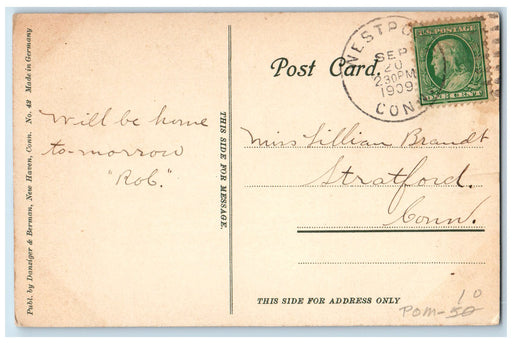 Publ. by Danziger & Berman, New Haven, Conn. No. 42 Made in Germany
Will be home
to-morrow
"Rob."
THIS SIDE FOR MESSAGE.
Post Card.
WESTPO
SEP
20
2 30 PM
1909
CON
U.S. POSTAGE
ONE CENT
Miss Lillian Brandt
Stratford.
Conn.
THIS SIDE FOR ADDRESS ONLY
10
POM-50